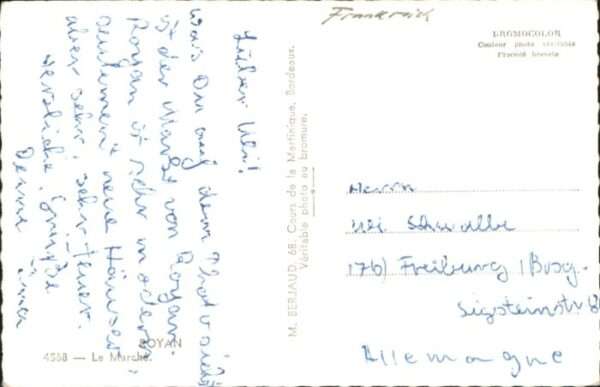 Frankreich
BROMOCOLOR
Couleur photo véritable
Procédé breveté
Lieber Uli!
was Du auf dem Photo siehst
ist der Markt von Royan.
Royan ist sehr modern,
neue Häuser,
aber sehr, sehr teuer.
Herzliche Grüße
Deine
M. BERJAUD, 68, Cours de la Martinique, Bordeaux.
Véritable photo au bromure.
Herrn
Uli Schwalbe
(17b) Freiburg / Brsg.
Sigsteinstr
Allemagne
ROYAN
4568 - Le Marché.